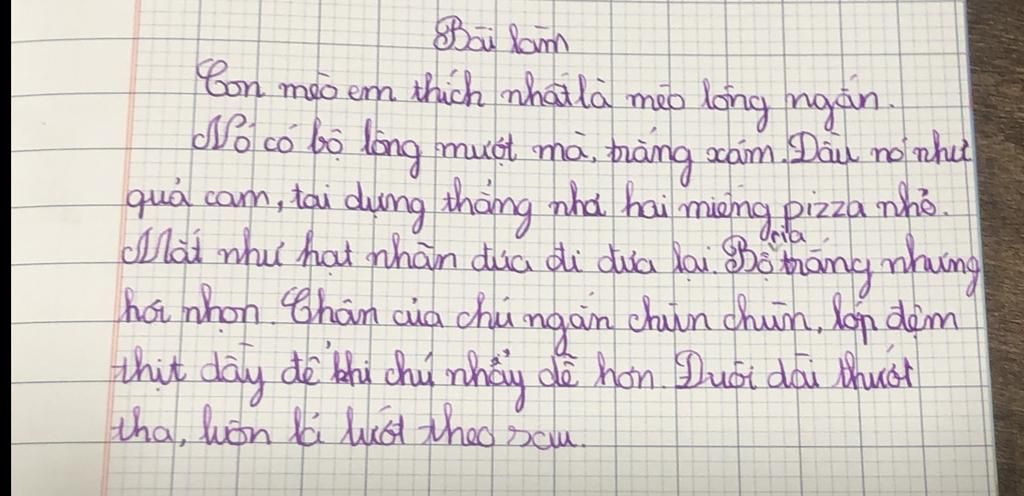 Bài làm
Con mèo em thích nhất là mèo lông ngắn.
Nó có bộ lông mượt mà, trắng xám. Đầu nó như
quả cam, tai dựng thẳng như hai miếng pizza nhỏ.
Mắt như hạt nhãn đưa đi đưa lại. Bộ ria trắng nhưng
hơi nhọn. Chân của chú ngắn chùn chũn, lớp đệm
thịt dầy để khi chú nhẩy dễ hơn. Đuôi dài thướt
tha, luôn lả lướt theo sau.